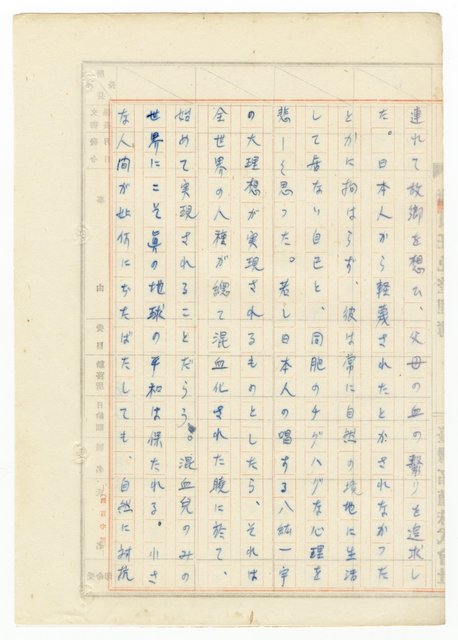 連れて故郷を想ひ、父母の血の繋りを追求し
た。日本人から軽蔑されたとかされなかつた
とかに拘はらず、彼は常に自然の境地に生活
して居ない自己と、同胞のチグハグな心理を
悲しく思つた。若し日本人の唱する八紘一宇
の大理想が実現されるものとしたら、それは
全世界の人種が總て混血化された曉に於て、
始めて実現されることだらう。混血兒のみの
世界にこそ眞の地球の平和は保たれる。小さ
な人間が如何にぢたばたしても、自然に対抗